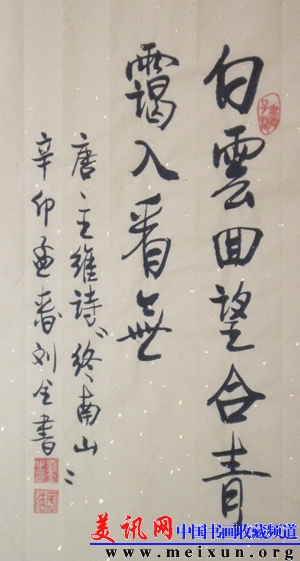 白雲回望合青
靄入看無
唐王維詩〝終南山〞
辛卯孟春刘全書
美讯网 中国书画收藏频道
www.meixun.org